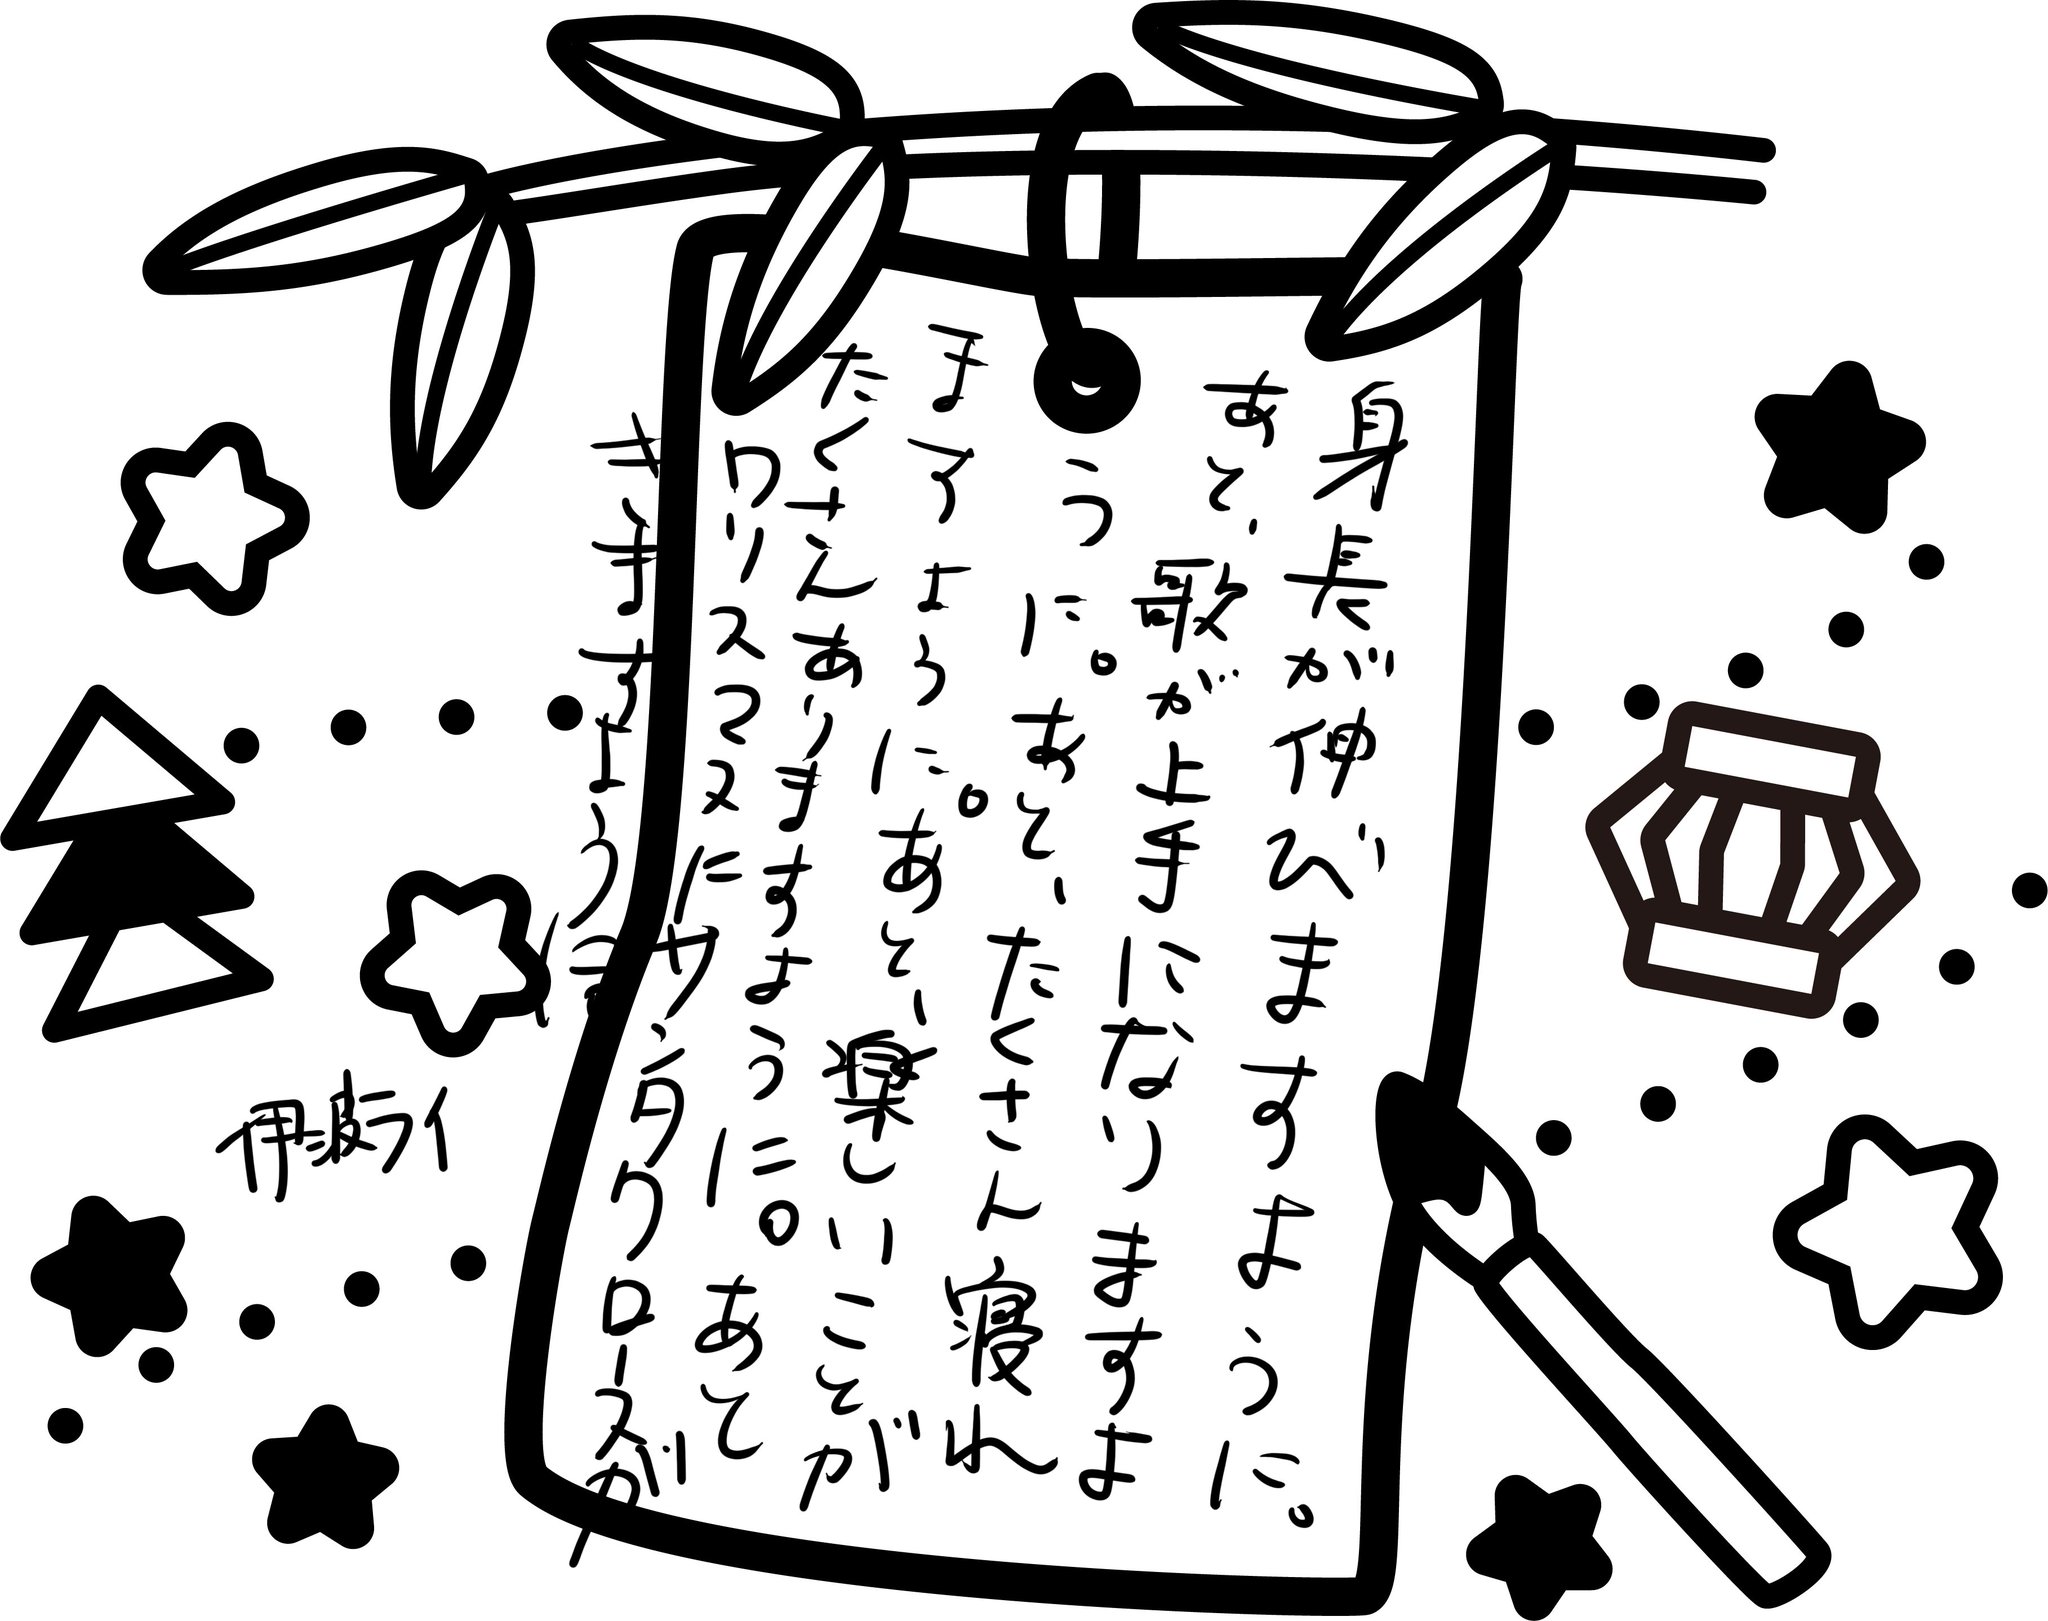 身長が伸びますように。
あと、歌が上手になりますよ
うに。あと、たくさん寝れ
ますように。あと、楽しいことが
たくさんありますように。あと
クリスマスにサンタクロースが
きますように
伊波ライ